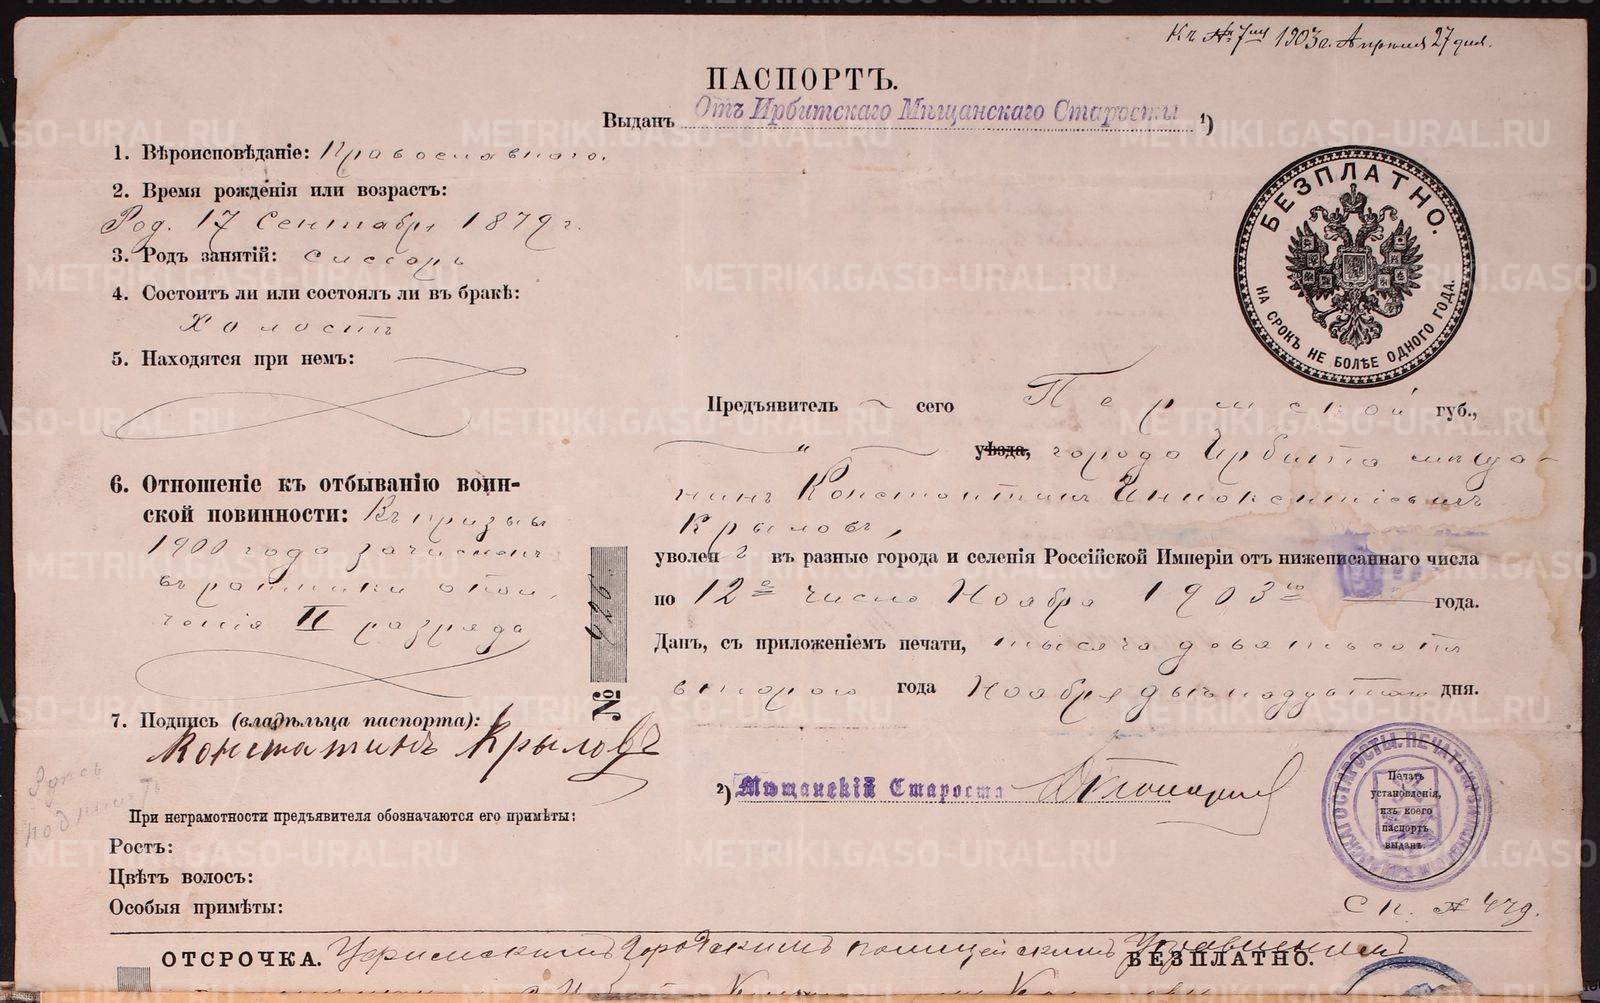 Къ № 7му 1903 г. Апреля 27 дня.
ПАСПОРТЪ.
Выданъ Отъ Ирбитскаго Мѣщанскаго Старосты ¹)
1. Вѣроисповѣданіе: Православнаго.
2. Время рожденія или возрастъ:
Род. 17 Сентября 1879 г.
3. Родъ занятій:
4. Состоитъ ли или состоялъ ли въ бракѣ:
Холостъ
5. Находятся при немъ:
6. Отношеніе къ отбыванію воин-
ской повинности: Въ призывъ
1900 года зачисленъ
въ ратники опол-
ченія II разряда
7. Подпись (владѣльца паспорта):
Констатинъ Крыловъ
Здесь
подпись
При неграмотности предъявителя обозначаются его примѣты:
Ростъ:
Цвѣтъ волосъ:
Особыя примѣты:
БЕЗПЛАТНО.
НА СРОКЪ НЕ БОЛѢЕ ОДНОГО ГОДА.
Предъявитель сего Пермской губ.,
уѣзда, города Ирбита мѣща-
нинъ Константинъ Иннокентіевичъ
Крыловъ,
уволенъ въ разные города и селенія Россійской Имперіи отъ нижеписаннаго числа
по 12е число Ноября 1903го года.
Данъ, съ приложеніемъ печати, тысяча девятьсотъ
второго года Ноября двѣнадцатаго дня.
№ 926.
²) Мѣщанскій Староста
Печать
установленія,
изъ коего
паспортъ
выданъ.
СП. № 449.
ОТСРОЧКА. Уфимскимъ Городскимъ полицейскимъ Управленіемъ
БЕЗПЛАТНО.
METRIKI.GASO-URAL.RU